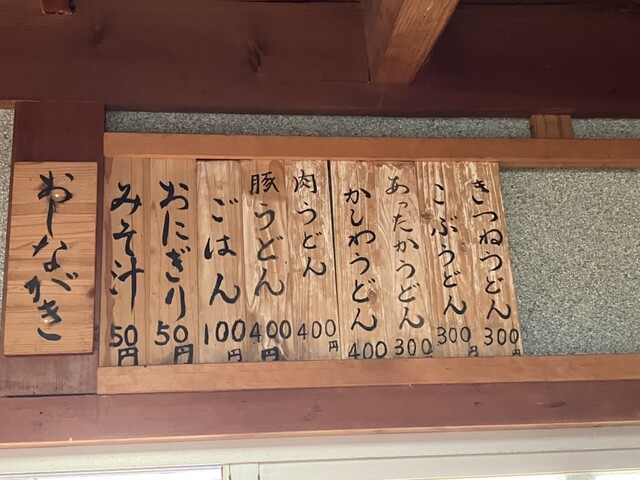 きつねうどん 300円
こぶうどん 300円
あったかうどん 300
かしわうどん 400
肉うどん 400円
豚うどん 400円
ごはん 100円
おにぎり 50円
みそ汁 50円
おしながき